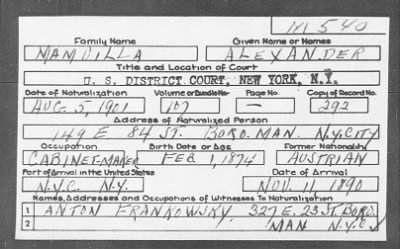 M 540
Family Name Given Name or Names
MAMULLA ALEXANDER
Title and Location of Court
U. S. DISTRICT COURT, NEW YORK, N.Y.
Date of Naturalization Volume or Bundle No. Page No. Copy of Record No.
AUG. 5, 1901 107 — 292
Address of Naturalized Person
149 E 84 ST. BORO. MAN. N.Y. CITY
Occupation Birth Date or Age Former Nationality
CABINET-MAKER FEB 1, 1874 AUSTRIAN
Port of Arrival in the United States Date of Arrival
N.Y.C. N.Y. NOV. 11, 1890
Names, Addresses and Occupations of Witnesses To Naturalization
1 ANTON FRANKOWSKY. 327 E. 23 ST. BORO.
2 MAN N.Y.C.